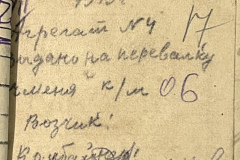 грегат № 4 17
ыдано на перевалку
ч меня" к/м 06
Возчик!